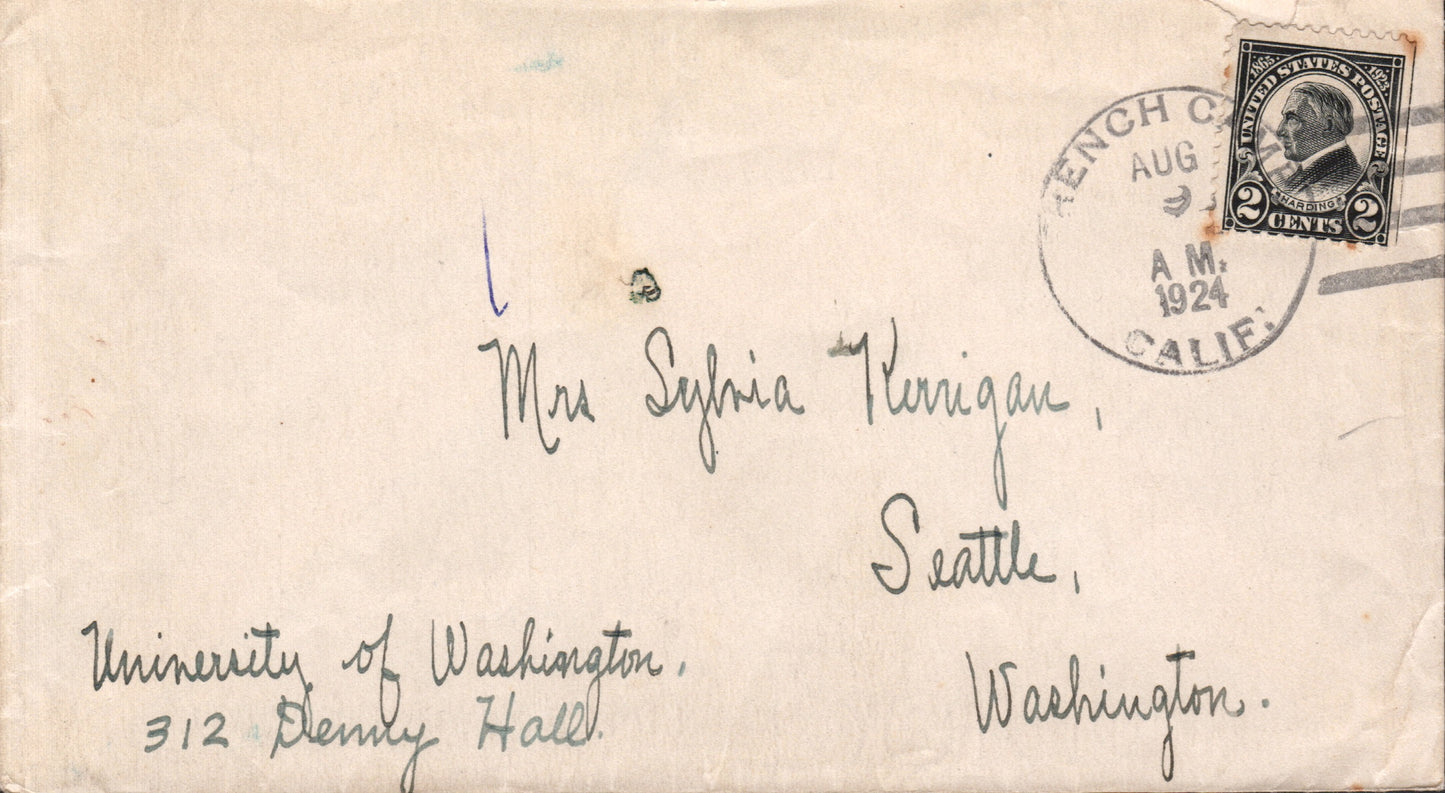 1865 1923
UNITED STATES POSTAGE
HARDING
2 CENTS 2
RENCH CAMP
AUG
A M.
1924
CALIF.
Mrs Sylvia Kerrigan,
Seattle,
Washington.
University of Washington.
312 Denny Hall.